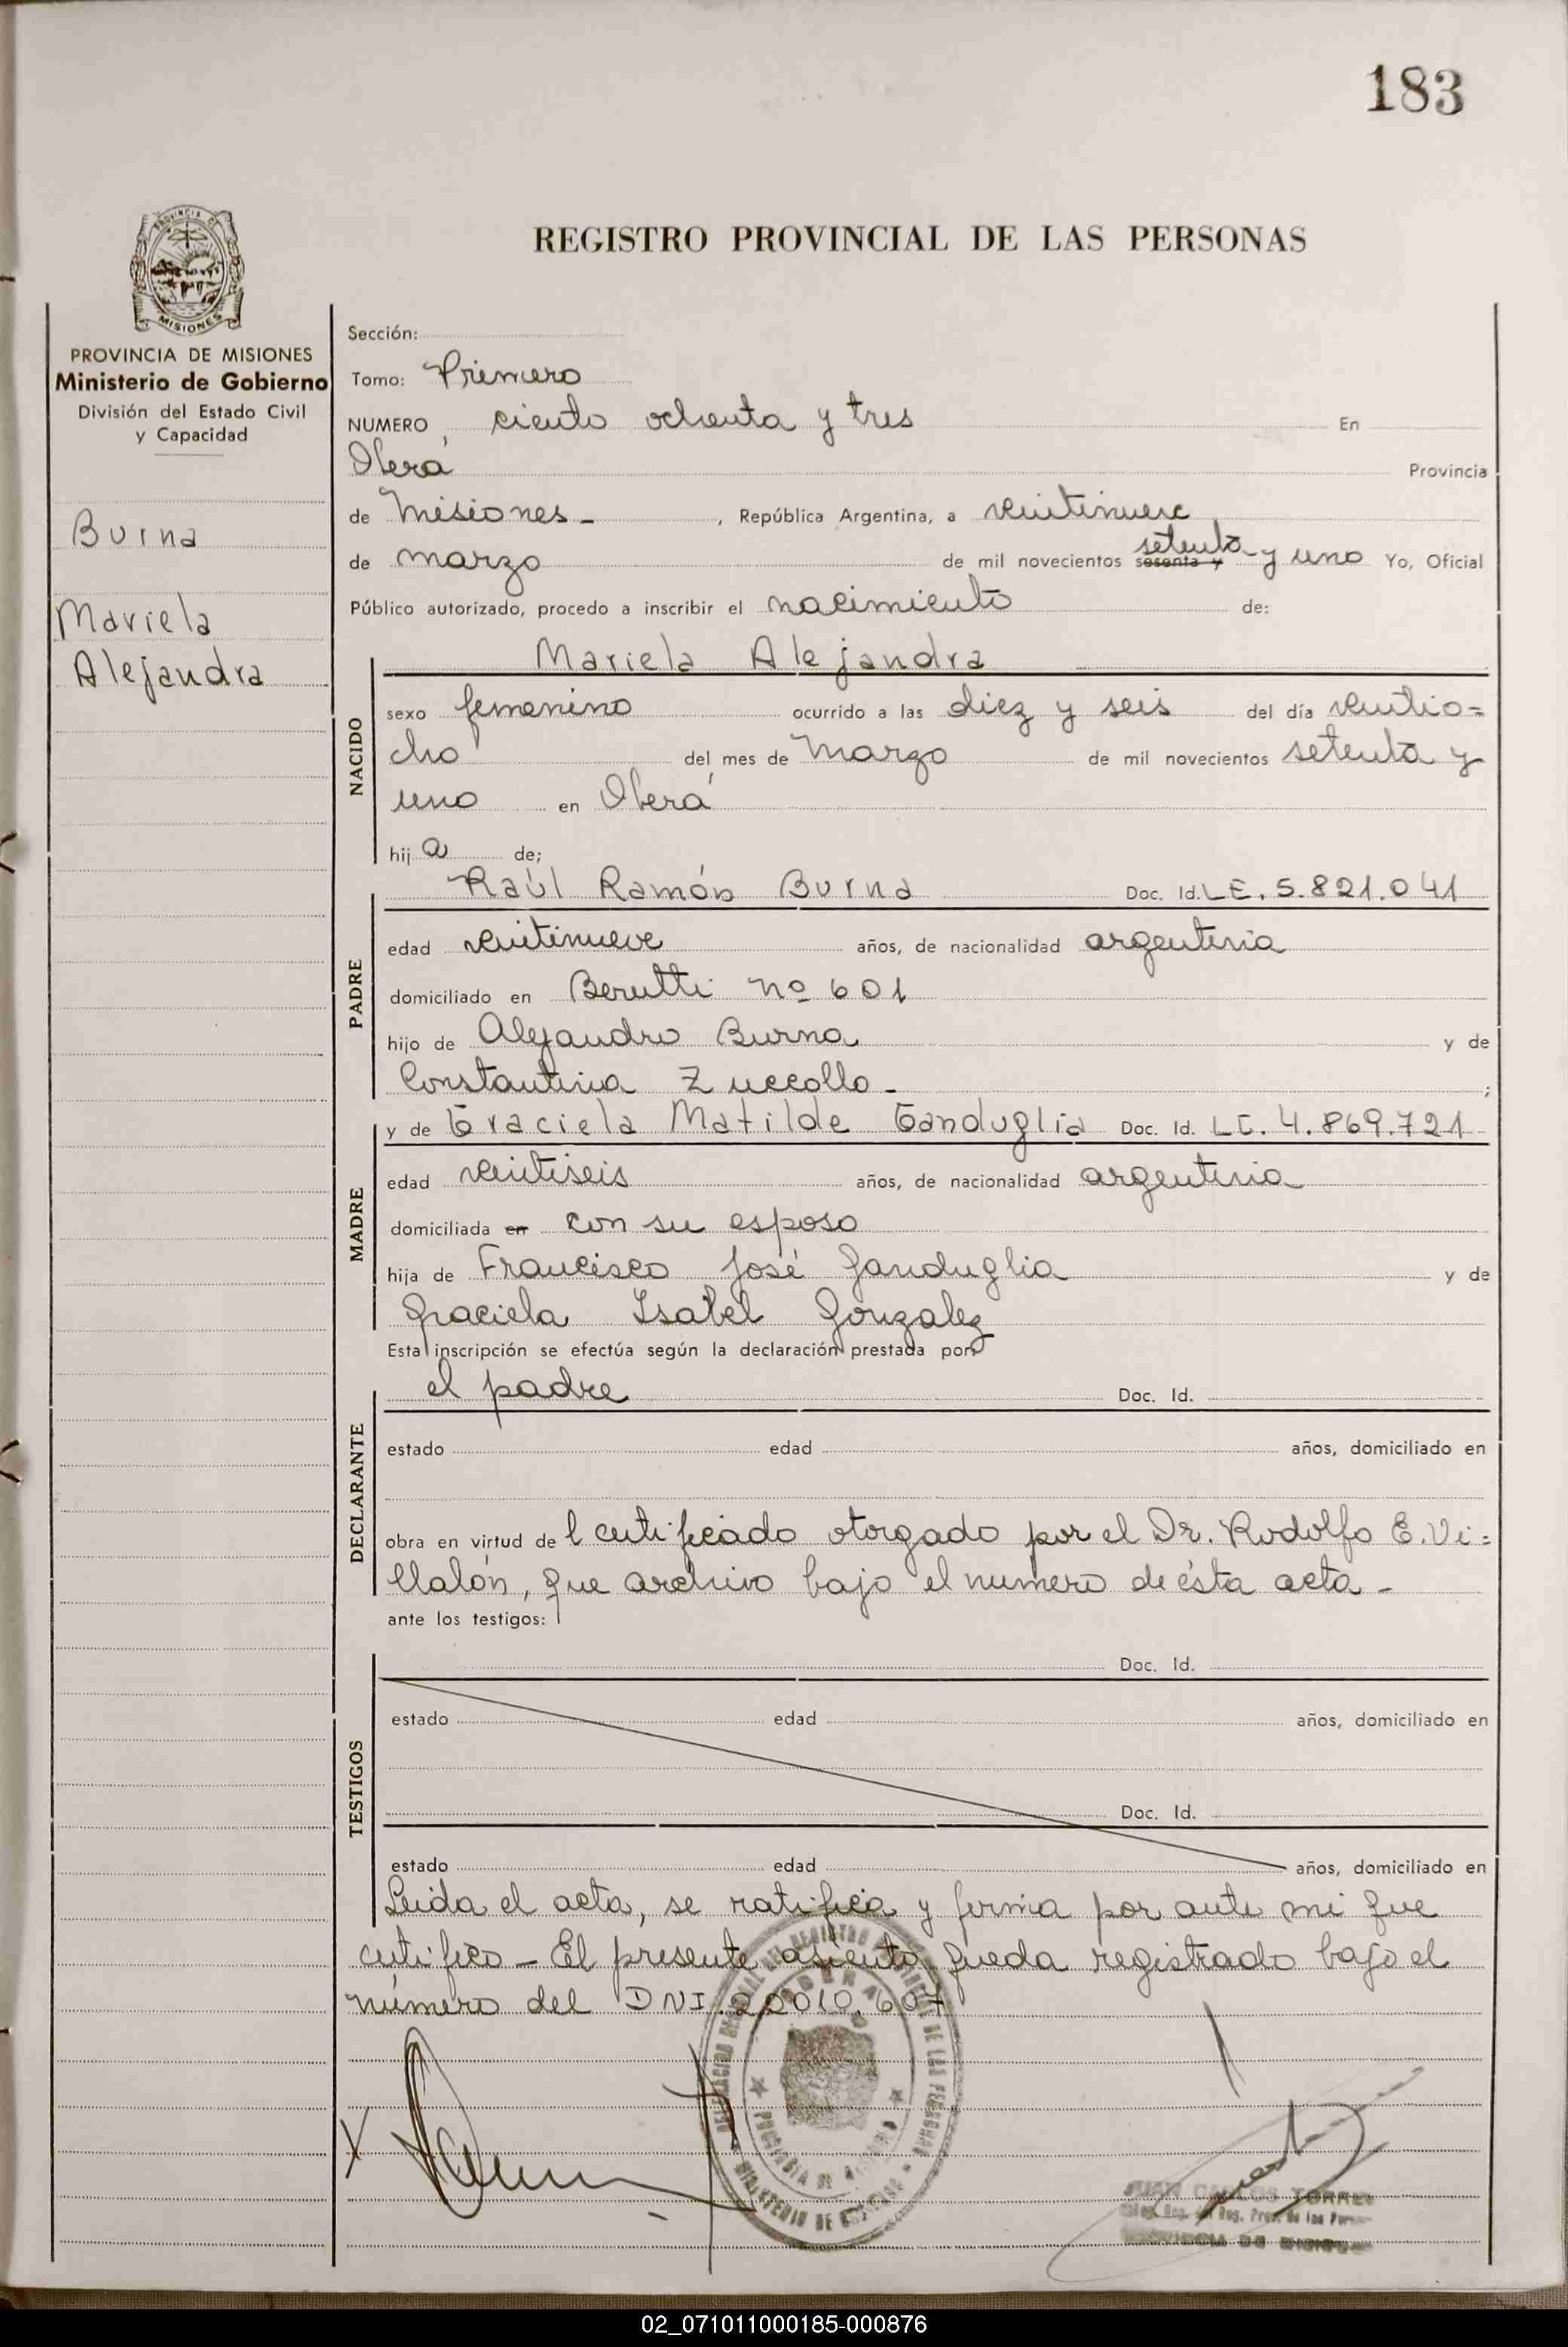 183
REGISTRO PROVINCIAL DE LAS PERSONAS
PROVINCIA DE
MISIONES
PROVINCIA DE MISIONES
Ministerio de Gobierno
División del Estado Civil
y Capacidad
Burna
Mariela
Alejandra
Sección:
Tomo: Primero
NUMERO, ciento ochenta y tres En
Oberá Provincia
de Misiones - , República Argentina, a veintinueve
de marzo de mil novecientos sesenta y setenta y uno Yo, Oficial
Público autorizado, procedo a inscribir el nacimiento de:
Mariela Alejandra
NACIDO
sexo femenino ocurrido a las diez y seis del día veintio=
cho del mes de Marzo de mil novecientos setenta y
uno en Oberá
hij a de;
Raúl Ramón Burna Doc. Id. LE. 5.821.041
PADRE
edad veintinueve años, de nacionalidad argentina
domiciliado en Berutti nº 601
hijo de Alejandro Burna y de
Constantina Zuccollo - ;
y de Graciela Matilde Ganduglia Doc. Id. LC. 4.869.721
MADRE
edad veintiseis años, de nacionalidad argentina
domiciliada en con su esposo
hija de Francisco José Ganduglia y de
Graciela Isabel Gonzalez
Esta inscripción se efectúa según la declaración prestada por:
el padre Doc. Id.
DECLARANTE
estado edad años, domiciliado en
obra en virtud de l certificado otorgado por el Dr. Rodolfo E. Vi=
llalón, que archivo bajo el numero de ésta acta -
ante los testigos:
Doc. Id.
TESTIGOS
estado edad años, domiciliado en
Doc. Id.
estado edad años, domiciliado en
Leida el acta, se ratifica y firma por ante mi que
certifico - El presente asiento queda registrado bajo el
número del DNI. 22010.607
DELEGACIÓN REGIONAL DEL REGISTRO PROVINCIAL DE LAS PERSONAS
OBERA
PROVINCIA DE MISIONES
MINISTERIO DE GOBIERNO
JUAN CARLOS TORRES
PROVINCIA DE MISIONES
02_071011000185-000876